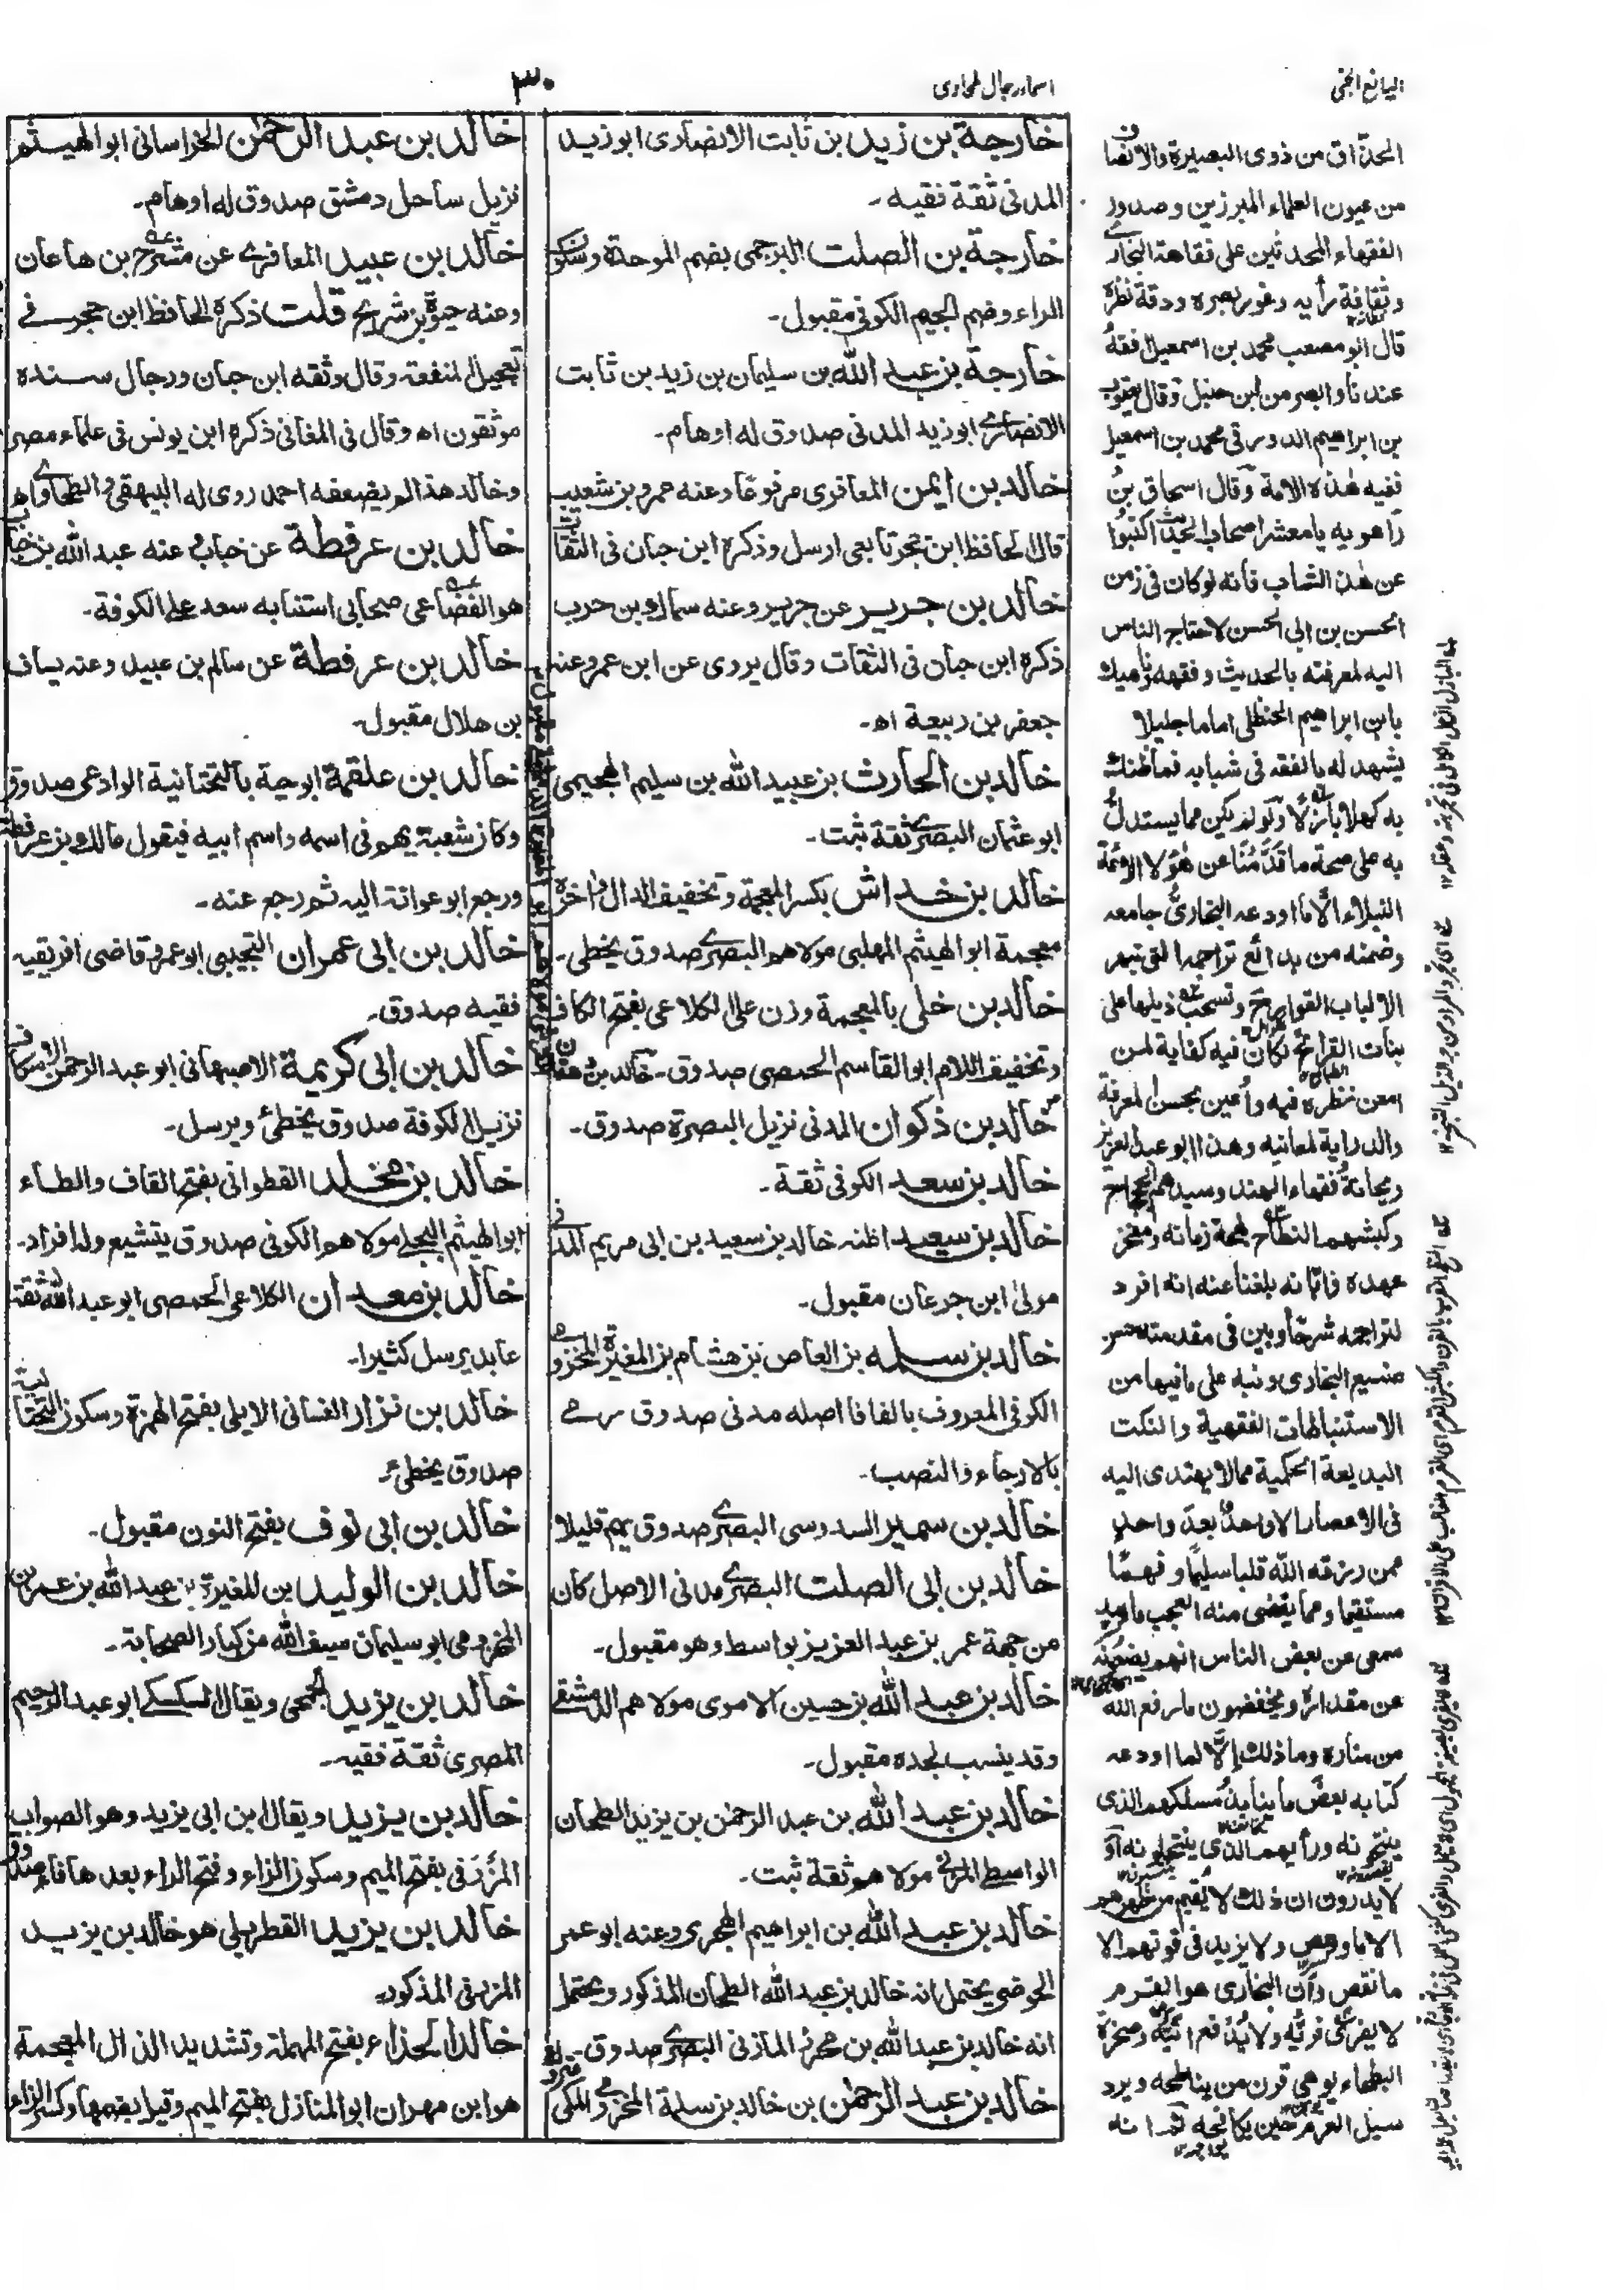 اليانع الجنى
اسماء رجال طحاوى
٣٠
الحذّاق من ذوى البصيرة والانصاف
من عيون العلماء المبرزين وصدور
الفقهاء المحدثين على فقاهة البخارى
وثقافة رأيه وغور بصره ودقة نظره
قال ابو مصعب محمد بن اسمعيل افقهُ
عندنا وابصر من ابن حنبل وقال يعقوب
بن ابراهيم الدورقى محمد بن اسمعيل
فقيه هذه الامة وقال اسحاق بنُ
راهويه يا معشر اصحاب الحديث اكتبوا
عن هذا الشاب فانه لو كان فى زمن
الحسن بن ابى الحسن لاحتاج الناس
اليه لمعرفته بالحديث وفقهه ناهيك
بابن ابراهيم الحنظلى اماما جليلا
يشهد له بالفقه فى شبابه فما ظنك
به كهلا بازلا ولو لم يكن مما يستدلُّ
به على صحة ما قدّمنا عن هؤلاء الائمة
النبلاء الّا ما اودعه البخارىُّ جامعه
وضمنه من بدائع تراجمه التى تبهر
الالباب القوارح وتسحب ذيلها على
بنات القرائح لكان فيه كفاية لمن
امعن نظره فيه واُعين بحسن المعرفة
والدراية لمعانيه وهذا ابو عبد العزيز
ريحانةُ فقهاء الهند وسيدهم الجحجاح
وكبشهم النطاح لمحة زمانه ومفخر
عهده فانّا نه بلغنا عنه انه افرد
لتراجمه شرحًا وبين فى مقدمته حسن
صنيع البخارى ونبه على ما فيها من
الاستنباطات الفقهية والنكت
البديعة الحكمية مما لا يهتدى اليه
فى الاعصار الا واحدٌ بعدَ واحدٍ
ممن رزقه الله قلبا سليمًا وفهمًا
مستقيما ومما يقضى منه العجب ما قرع
سمعى عن بعض الناس انهم يضعونه
عن مقداره ويخفضون ما رفع الله
من مناره وما ذلك إلّا لما اودعه
كتابه بعضَ ما ينابذُ مسلكهم الذى
ينتحونه ورأيهم الذى ينتحلونه أوَ
لا يدرون ان ذلك لا يُقيم من ظهرهم
الا ما وهص ولا يزيد فى قوتهم الا
ما نقص وان البخارى هو القرم
لا يفرى فريّه ولا يُدفع اتيّه وصخرة
البطحاء يوهى قرن من يناطحه ويرد
سيل العرم حين يكافحه ثم انه
خارجة بن زيد بن ثابت الانصارى ابو زيد
المدنى ثقة فقيه۔
خارجة بن الصلت البرجمى بضم الموحدة وسكون
الراء وضم الجيم الكوفى مقبول۔
خارجة بن عبد الله بن سليمان بن زيد بن ثابت
الانصارى ابو زيد المدنى صدوق له اوهام۔
خالد بن ايمن المعافرى مرفوعًا وعنه عمرو بن شعيب
قال الحافظ ابن حجر تابعى ارسل وذكره ابن حبان فى الثقات
خالد بن جرير عن جرير وعنه سماك بن حرب
ذكره ابن حبان فى الثقات وقال يروى عن ابن عمر وعنه
جعفر بن ربيعة اھ۔
خالد بن الحارث بن عبيد الله بن سليم الهجيمى
ابو عثمان البصرى ثقة ثبت۔
خالد بن خداش بكسر المعجمة وتخفيف الدال واخره
معجمة ابو الهيثم المهلبى مولاهم البصرى صدوق يخطى۔
خالد بن خلى بالمعجمة وزن على الكلاعى بفتح الكاف
وتخفيف اللام ابو القاسم الحمصى صدوق۔
خالد بن ذكوان المدنى نزيل البصرة صدوق۔
خالد بن سعد الكوفى ثقة۔
خالد بن سعيد اظنه خالد بن سعيد بن ابى مريم المدنى
مولىٰ ابن جدعان مقبول۔
خالد بن سلمه بن العاص بن هشام بن المغيرة المخزومى
الكوفى المعروف بالفافا اصله مدنى صدوق رمى
بالارجاء والنصب۔
خالد بن سمير السدوسى البصرى صدوق يهم قليلا
خالد بن ابى الصلت البصرى مدنى الاصل كان
من جهة عمر بن عبد العزيز بواسط وهو مقبول۔
خالد بن عبد الله بن حسين الاموى مولاهم الدمشقى
وقد ينسب لجده مقبول۔
خالد بن عبد الله بن عبد الرحمٰن بن يزيد الطحان
الواسطى المزنى مولاهم ثقة ثبت۔
خالد بن عبد الله بن ابراهيم الهجرى وعنه ابو عمر
الحوضى يحتمل انه خالد بن عبد الله الطحان المذكور ويحتمل
انه خالد بن عبد الله بن محرز المازنى البصرى صدوق۔
خالد بن عبد الرحمٰن بن خالد بن سلمة المخزومى المكى
خالد بن عبد الرحمٰن الخراسانى ابو الهيثم
نزيل ساحل دمشق صدوق له اوهام۔
خالد بن عبيد المعافرى عن مشرح بن هاعان
وعنه حيوة بن شريح قلت ذكره الحافظ ابن حجر فى
تعجيل المنفعة وقال وثقه ابن حبان ورجال سنده
موثقون اھ وقال فى المغانى ذكره ابن يونس فى علماء مصر
وخالد هذا لم يضعفه احمد روى له البيهقى والطحاوى اھ
خالد بن عرفطة عن خباب وعنه عبد الله بن خباب
هو القضاعى صحابى استنابه سعد على الكوفة۔
خالد بن عرفطة عن سالم بن عبيد وعنه يساف
بن هلال مقبول۔
خالد بن علقمة ابو حية بالتحتانية الوادعى صدوق
وكان شعبة يهم فى اسمه واسم ابيه فيقول مالك بن عرفطة
ورجع ابو عوانة اليه ثم رجع عنه۔
خالد بن ابى عمران التجيبى ابو عمر قاضى افريقيه
فقيه صدوق۔
خالد بن ابى كريمة الاصبهانى ابو عبد الرحمٰن الاسكاف
نزيل الكوفة صدوق يخطئ ويرسل۔
خالد بن مخلد القطوانى بفتح القاف والطاء
ابو الهيثم البجلى مولاهم الكوفى صدوق يتشيع وله افراد۔
خالد بن معدان الكلاعى الحمصى ابو عبد الله ثقة
عابد يرسل كثيرا۔
خالد بن نزار الغسانى الايلى بفتح الهمزة وسكون التحتانية
صدوق يخطئ۔
خالد بن ابى نوف بفتح النون مقبول۔
خالد بن الوليد بن المغيرة بن عبد الله بن عمر بن
المخزومى ابو سليمان سيف الله من كبار الصحابة۔
خالد بن يزيد الجمحى ويقال السكسكى ابو عبد الرحيم
المصرى ثقة فقيه۔
خالد بن يزيد ويقال ابن ابى يزيد وهو الصواب
المزرفى بفتح الميم وسكون الزاء وفتح الراء بعدها فاء صدوق
خالد بن يزيد القطربلى هو خالد بن يزيد
المزرفى المذكور۔
خالد الحذاء بفتح المهملة وتشديد الذال المعجمة
هو ابن مهران ابو المنازل بفتح الميم وقيل بضمها وكسر الزاء